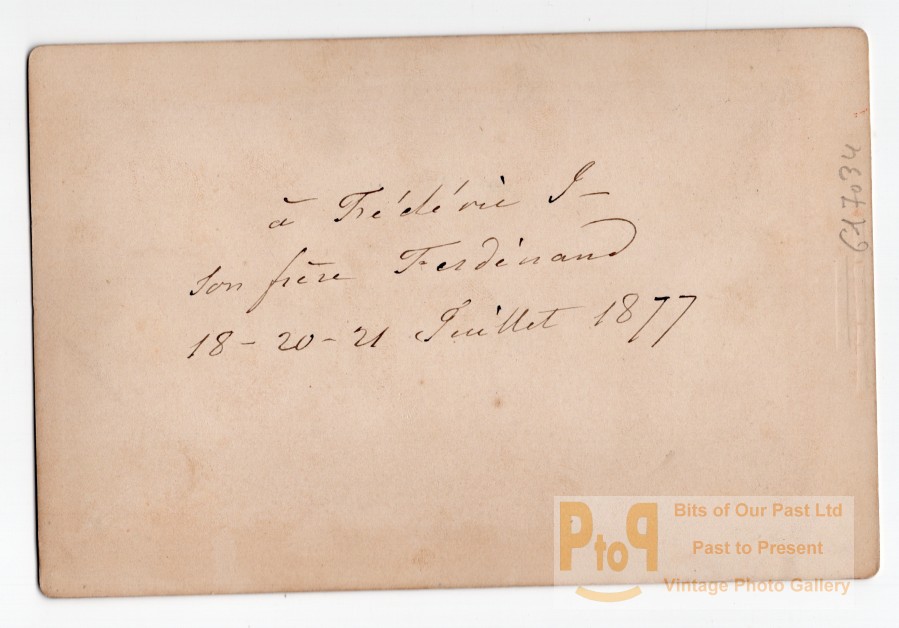 à Frédéric J-
son frère Ferdinand
18-20-21 Juillet 1877
617034
PtoP
Bits of Our Past Ltd
Past to Present
Vintage Photo Gallery